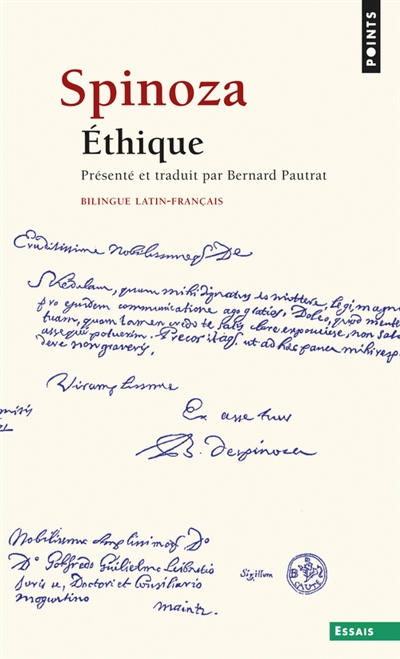 POINTS
Spinoza
Éthique
Présenté et traduit par Bernard Pautrat
BILINGUE LATIN-FRANÇAIS
Eruditissime nobilissimeq De
Schedulam, quam mihi dignatus es mittere, legi, magnas
pro ejusdem communicatione ago gratias. Doleo, quod mente
tuam, quam tamen credo te satis clare exposuisse, non sat
assequi potuerim. Precor itaq ut ad haec pauca mihi resp
dere non graveris,
Vir amplissime
Ex asse tuus
B. despinoza
Nobilissimo Amplissimoq Do
Do Gotfredo Guilielmo Leibnitio
Juris u. Doctori et Consiliario
moguntino
maintz
Sigillum
CAUTE
ESSAIS